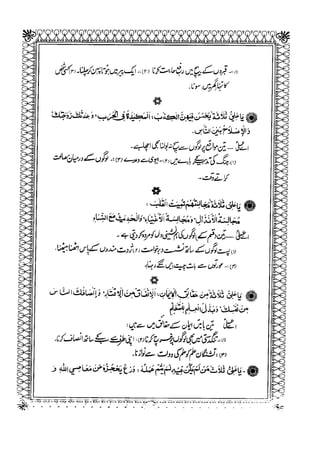 (۱)۔ قبروں کے بیچ میں رفع حاجت کرنا (۲)۔ ایک پیر میں جوتا پہن کر چلنا۔ (۳) کسی شخص
کا تنہا گھر میں سونا۔
یَا عَلِیُّ ثَلَاثَۃٌ یَحْسُنُ فِیْہِنَّ الْکِذْبُ، اَلْمَکِیْدَۃُ فِی الْحَرْبِ، وَعِدَتُکَ زَوْجَتَکَ
وَالْاِصْلَاحُ بَیْنَ النَّاسِ۔
اے علیؑ — تین مواقع پر لوگوں سے سچ نہ بولنا بھی اچھا ہے۔
(۱) جنگ کی تدبیر کے بارے میں (۲)۔ بیوی سے وعدے (۳)۔ لوگوں کے درمیان مصالحت
کراتے وقت۔
یَا عَلِیُّ ثَلَاثَۃٌ مُجَالَسَتُہُمْ تُمِیْتُ الْقَلْبَ،
مُجَالَسَۃُ الْاَنْذَالِ، وَمُجَالَسَۃُ الْاَغْنِیَاءِ، وَالْحَدِیْثُ مَعَ النِّسَاءِ
اے علیؑ — تین قسم کے لوگوں کی ہم نشینی دل کو مردہ کر دیتی ہے۔
(۱) پست لوگوں کے ساتھ نشست و برخواست (۲) ثروت مندوں کے پاس اٹھنا بیٹھنا۔
(۳)۔ عورتوں سے بات چیت میں لگے رہنا۔
یَا عَلِیُّ ثَلَاثَۃٌ مِنْ حَقَائِقِ الْاِیْمَانِ، اَلْاِنْفَاقُ مِنَ الْاِقْتَارِ، وَاِنْصَافُکَ النَّاسَ
مِنْ نَفْسِکَ، وَبَذْلُ الْعِلْمِ لِلْمُتَعَلِّمِ
اے علیؑ تین باتیں ایمان کے حقائق میں سے ہیں:
(۱)۔ تنگدستی میں بھی لوگوں پر خرچ کرنا (۲)۔ اپنی طرف سے سب کے ساتھ انصاف کرنا۔
(۳) تشنگان علم کو علم کی دولت سے نوازنا۔
یَا عَلِیُّ ثَلَاثٌ مَنْ لَمْ یَکُنَّ فِیْہِ لَمْ یَتِمَّ عَمَلُہٗ، وَرَعٌ یَحْجُزُہٗ عَنْ مَعَاصِی اللّٰہِ وَ